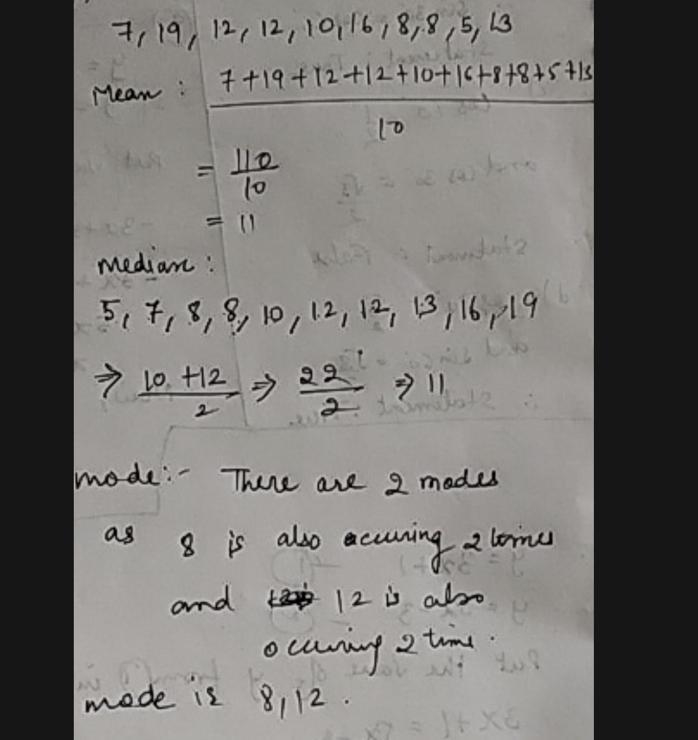 7, 19, 12, 12, 10, 16, 8, 8, 5, 13
Mean : 7+19+12+12+10+16+8+8+5+13
10
= 110
10
= 11
Median :
5, 7, 8, 8, 10, 12, 12, 13, 16, 19
⇒ 10+12 ⇒ 22 ⇒ 11
2 2
mode:- There are 2 modes
as 8 is also accuring 2 times
and 12 is also
occuring 2 time.
mode is 8, 12.